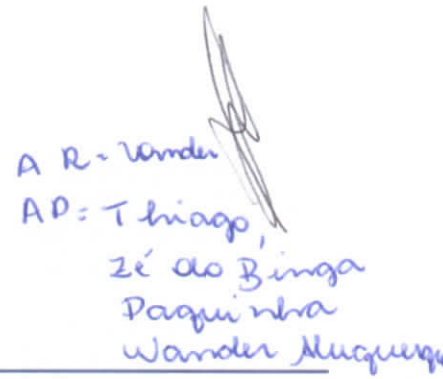 A R = Vander
AP: Thiago,
Zé do Binga
Paquinha
Wander